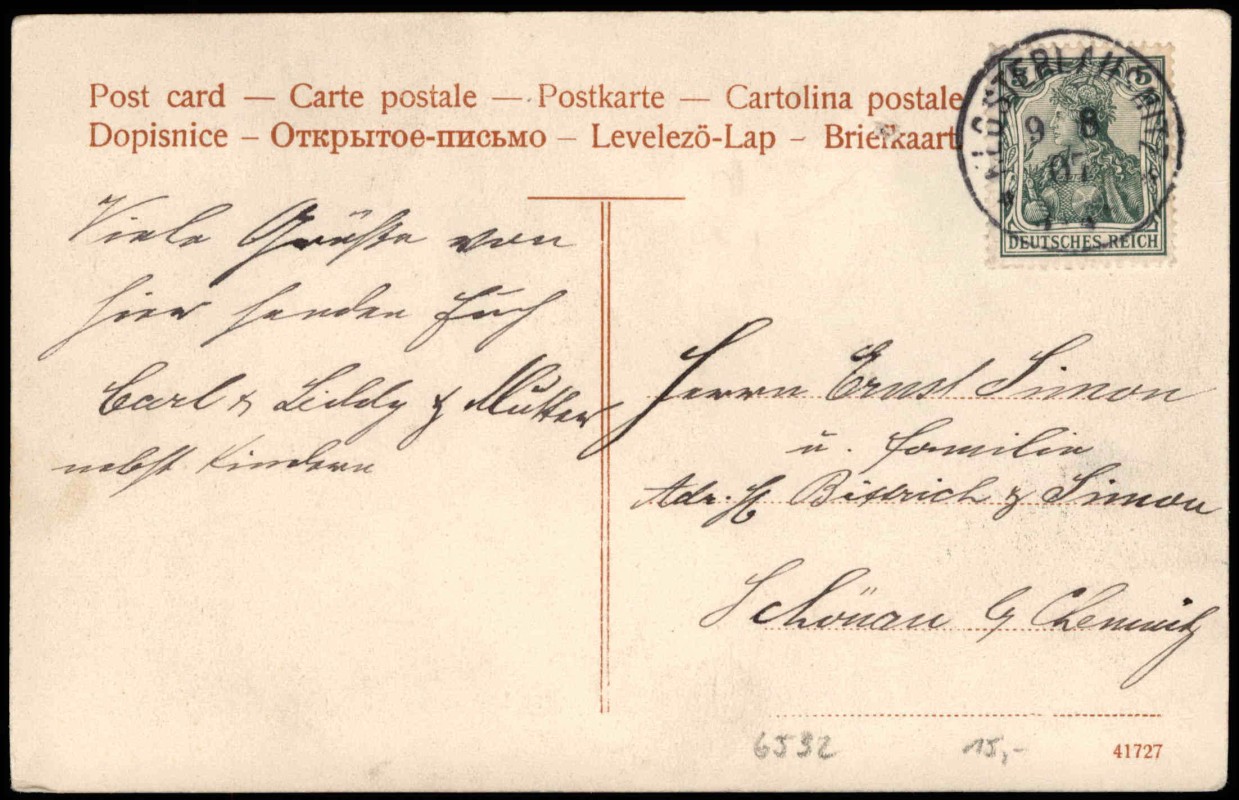 Post card — Carte postale — Postkarte — Cartolina postale
Dopisnice — Открытое-письмо — Levelezö-Lap — Briefkaart
KLOSTERLAUSNITZ
9 8
07
5 5
DEUTSCHES REICH
Viele Grüße von
hier senden Euch
Carl & Liddy & Mutter
nebst Kindern
Herrn Ernst Simon
u. Familie
Adr. H. Bittrich & Simon
Schönau b/ Chemnitz
6592 15,-
41727